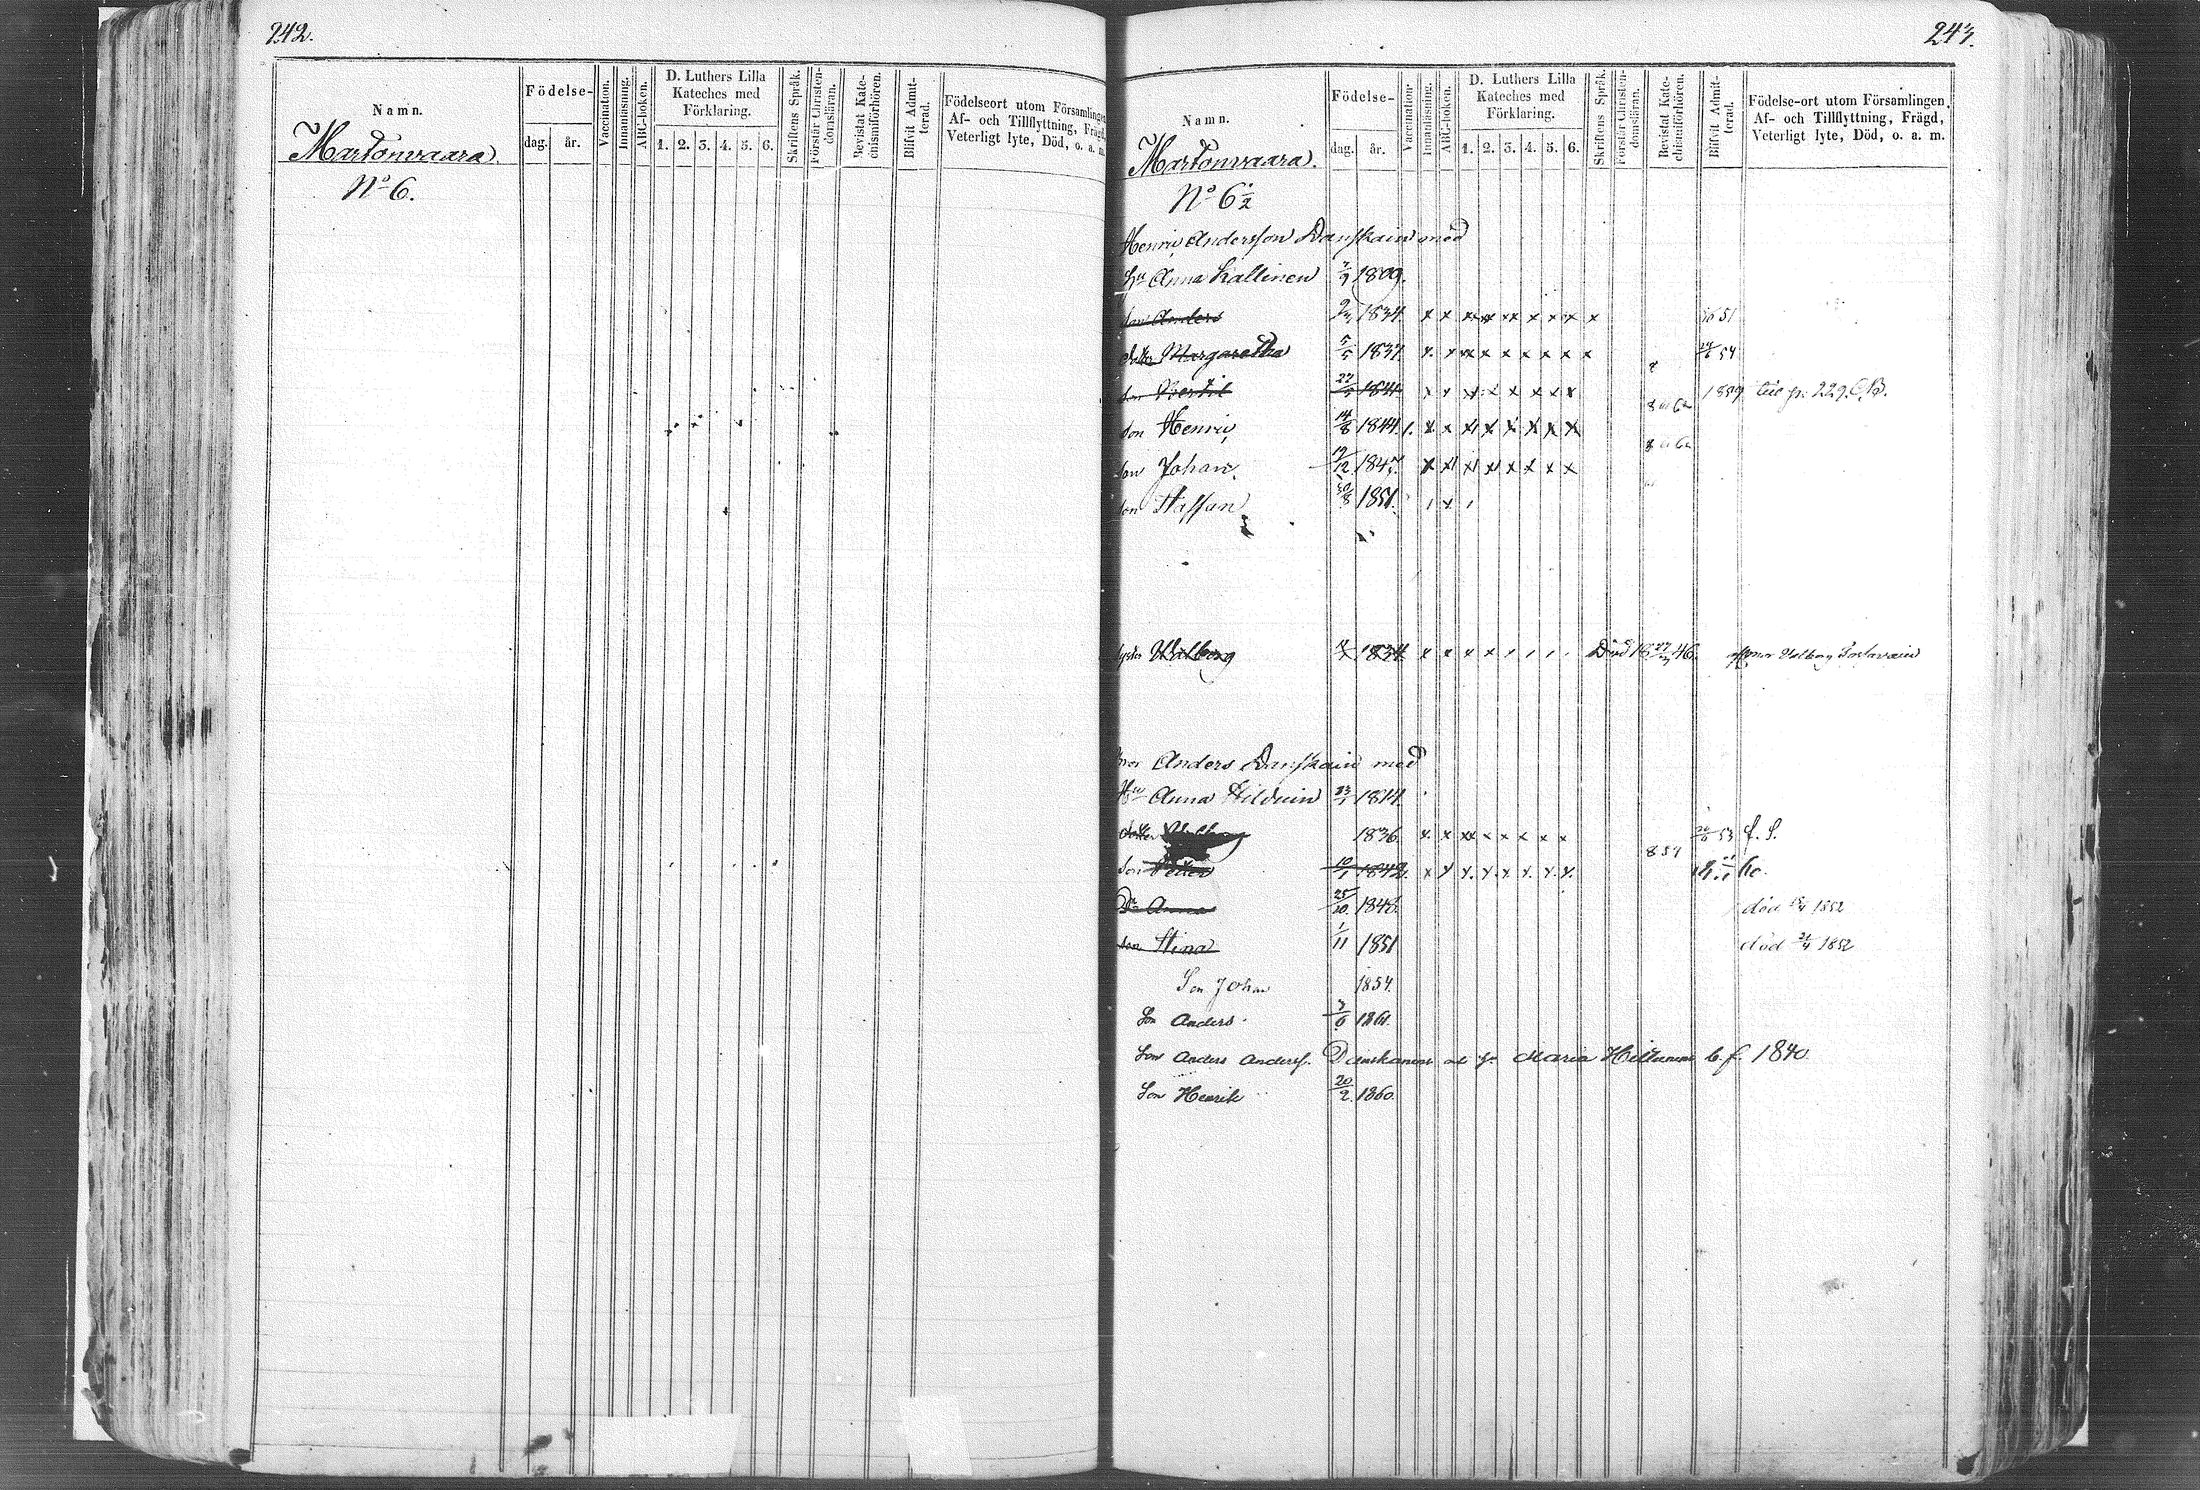 242.
Namn.
Födelse-
dag. år.
Vaccination.
Innanläsning.
ABC-boken.
D. Luthers Lilla
Kateches med
Förklaring.
1. 2. 3. 4. 5. 6.
Skriftens Språk.
Förstår Christen-
domsläran.
Bevistat Kate-
chismiförhören.
Blifvit Admit-
terad.
Födelseort utom Församlingen
Af- och Tillflyttning, Frägd,
Veterligt lyte, Död, o. a. m.
Martonvaara
No 6.
243.
Namn.
Födelse-
dag. år.
Vaccination.
Innanläsning.
ABC-boken.
D. Luthers Lilla
Kateches med
Förklaring.
1. 2. 3. 4. 5. 6.
Skriftens Språk.
Förstår Christen-
domsläran.
Bevistat Kate-
chismiförhören.
Blifvit Admit-
terad.
Födelse-ort utom Församlingen,
Af- och Tillflyttning, Frägd,
Veterligt lyte, Död, o. a. m.
Martonvaara.
No 6 1/2
Henric Andersson Danskain med
Hu Anna Kallinen 7/9 1809.
son Anders 1834 x x x x x x x x x 51
dotter Margaretha 5/5 1837 x x x x x x x x x 54
son Bertil 1841 x x x x x x x x 1859 229.
son Henric 14/8 1844 x x x x x x x x
son Johan 19/12 1847. x x x x x x x x
son Staffan 30/8 1851.
syster Walborg 1834 x x x x Död 46. Valborg
bror Anders Danskain med
Hu Anna Hilduin 23/1 1814.
dotter 1836. x x x x x x x x 53 f. S.
son Petter 10/1 1842. x x x x x x x x 857
Dr Anna 25/10. 1848. död 1852
Stina 1/11 1851 död 1852
Son Johan 1854.
Son Anders 3/6 1861.
Son Anders Anders. Danskanen Maria Hiltunen 1840
Son Henrik 20/2. 1860.